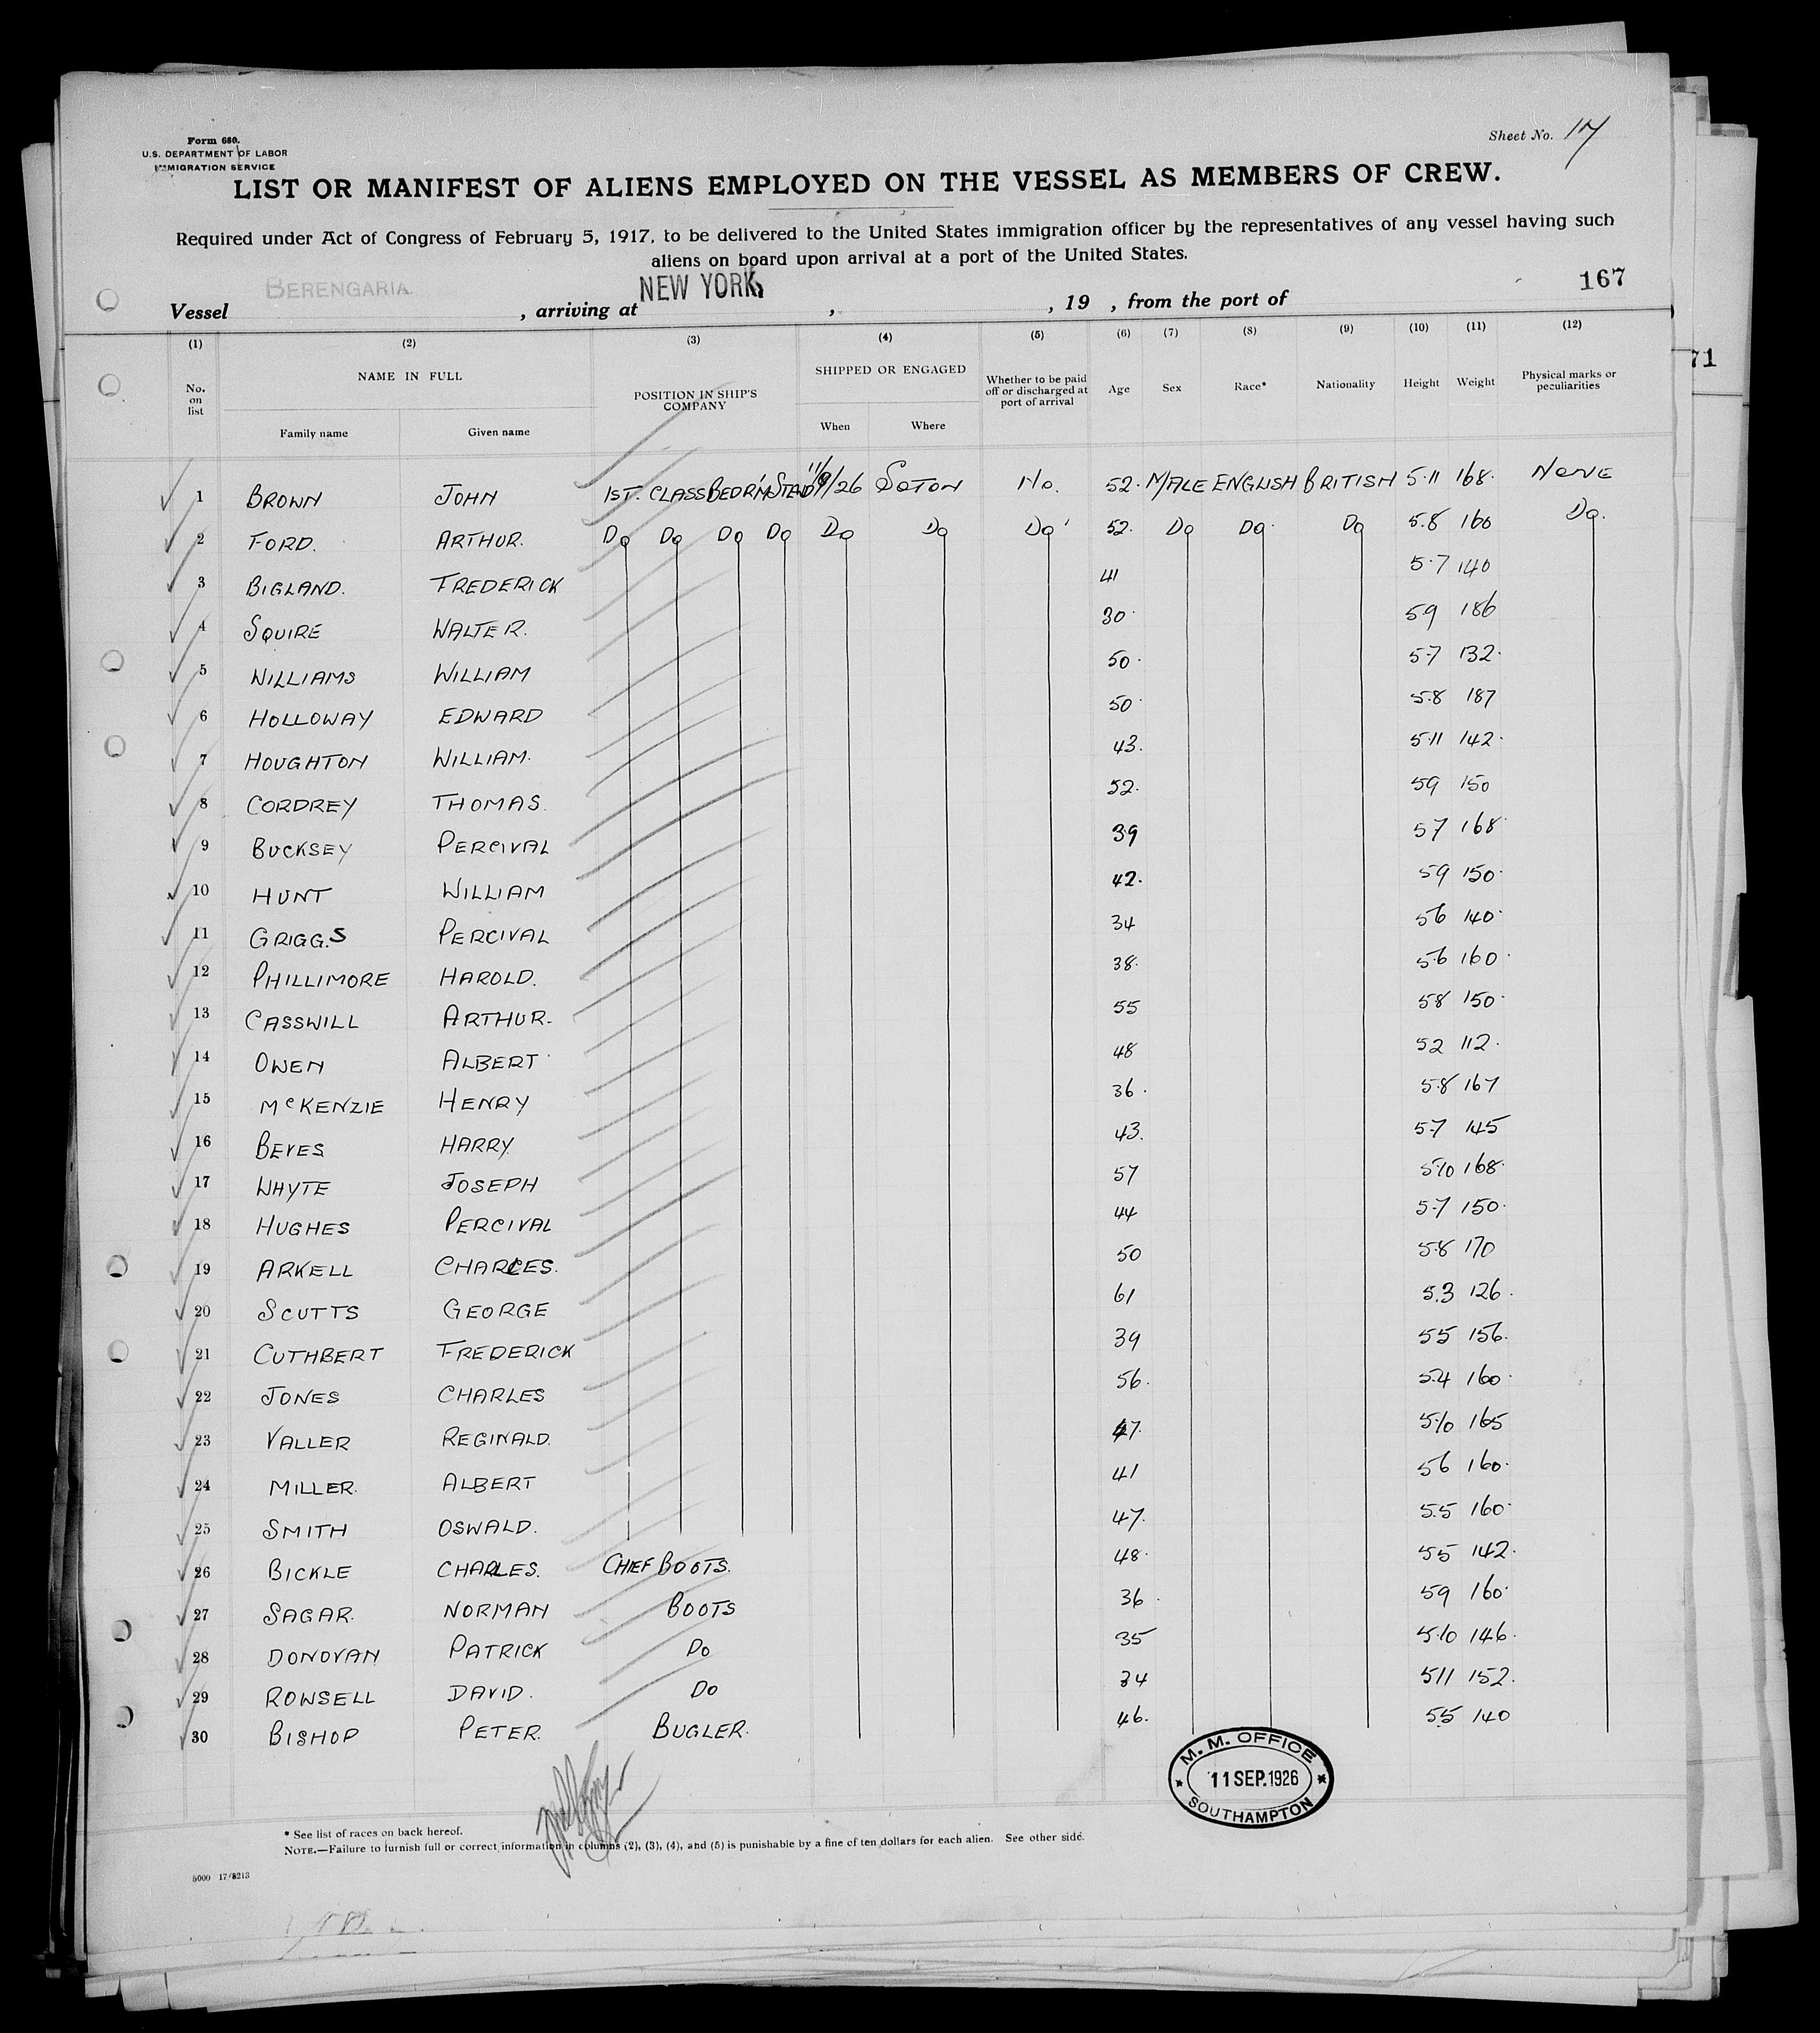 Form 680.
U.S. DEPARTMENT OF LABOR
IMMIGRATION SERVICE
Sheet No. 17
LIST OR MANIFEST OF ALIENS EMPLOYED ON THE VESSEL AS MEMBERS OF CREW.
Required under Act of Congress of February 5, 1917, to be delivered to the United States immigration officer by the representatives of any vessel having such
aliens on board upon arrival at a port of the United States.
167
Vessel BERENGARIA, arriving at NEW YORK, , 19 , from the port of
71
(1) (2) (3) (4) (5) (6) (7) (8) (9) (10) (11) (12)
No. on list NAME IN FULL POSITION IN SHIP'S COMPANY SHIPPED OR ENGAGED Whether to be paid off or discharged at port of arrival Age Sex Race* Nationality Height Weight Physical marks or peculiarities
Family name Given name When Where
1 BROWN JOHN 1ST. CLASS BEDR'M STEWD 11/9/26 SOTON No. 52. MALE ENGLISH BRITISH 5.11 168. NONE
2 FORD. ARTHUR. Do Do Do Do Do Do Do 52. Do Do Do 5.8 160 Do.
3 BIGLAND. FREDERICK 41 5.7 140
4 SQUIRE WALTER. 30 59 186
5 WILLIAMS WILLIAM 50. 5.7 132.
6 HOLLOWAY EDWARD 50 5.8 187
7 HOUGHTON WILLIAM. 43. 5.11 142.
8 CORDREY THOMAS. 52. 59 150
9 BUCKSEY PERCIVAL 39 57 168
10 HUNT WILLIAM 42. 59 150.
11 GRIGG.S PERCIVAL 34 56 140.
12 PHILLIMORE HAROLD. 38. 5.6 160.
13 CASSWILL ARTHUR. 55 58 150.
14 OWEN ALBERT 48 52 112.
15 McKENZIE HENRY 36. 5.8 167
16 BEVES HARRY 43. 5.7 145
17 WHYTE JOSEPH 57 5.10 168.
18 HUGHES PERCIVAL 44 5.7 150.
19 ARKELL CHARLES. 50 5.8 170
20 SCUTTS GEORGE 61 5.3 126.
21 CUTHBERT FREDERICK 39 55 156.
22 JONES CHARLES 56. 5.4 160.
23 VALLER REGINALD. 47. 5.10 165
24 MILLER. ALBERT 41 56 160.
25 SMITH OSWALD. 47. 5.5 160.
26 BICKLE CHARLES. CHIEF BOOTS. 48. 55 142.
27 SAGAR. NORMAN BOOTS 36. 59 160.
28 DONOVAN PATRICK Do 35 5.10 146.
29 ROWSELL DAVID. Do 34 511 152.
30 BISHOP PETER. BUGLER. 46. 5.5 140
M. M. OFFICE
11 SEP. 1926
SOUTHAMPTON
* See list of races on back hereof.
NOTE.—Failure to furnish full or correct information in columns (2), (3), (4), and (5) is punishable by a fine of ten dollars for each alien. See other side.
5000 17/8213